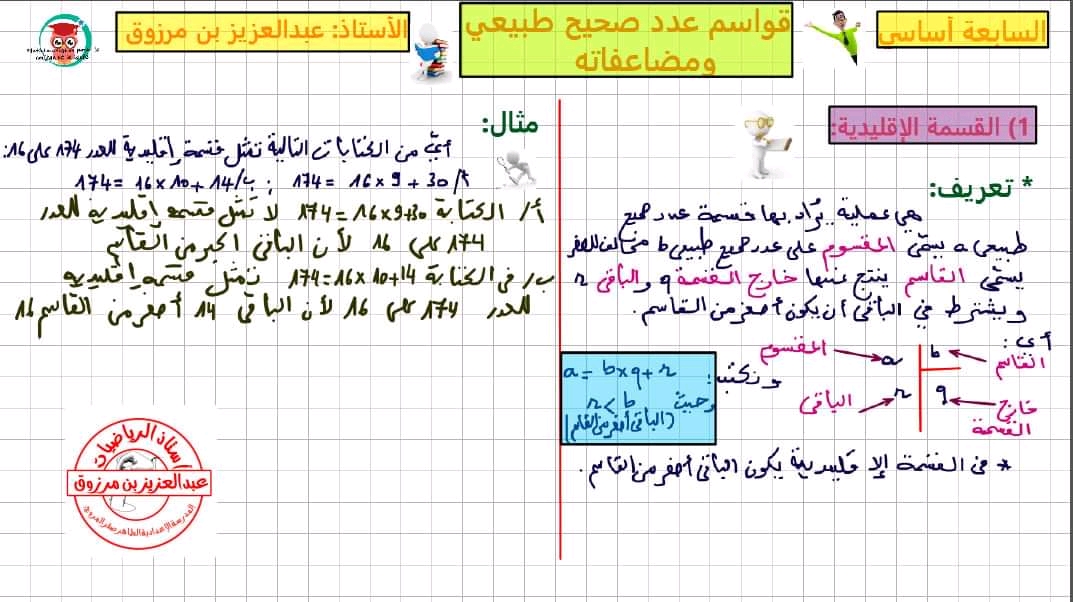 السابعة أساسي
قواسم عدد صحيح طبيعي
ومضاعفاته
الأستاذ: عبدالعزيز بن مرزوق
1) القسمة الإقليدية:
* تعريف:
هي عملية يُراد بها قسمة عدد صحيح
طبيعي a يسمّى المقسوم على عدد صحيح طبيعي b مخالف للصفر
يسمّى القاسم ينتج عنها خارج القسمة q والباقي r
ويشترط في الباقي أن يكون أصغر من القاسم.
أي:
المقسوم a b القاسم
الباقي r q خارج القسمة
ونكتب:
a = b×q + r
وحيث r < b
(الباقي أصغر من القاسم)
* في القسمة الإقليدية يكون الباقي أصغر من القاسم.
مثال:
أيّ من الكتابات التالية تمثل قسمة إقليدية للعدد 174 على 16:
أ/ 174 = 16×9+30 ; ب/ 174 = 16×10+14
أ/ الكتابة 174=16×9+30 لا تمثل قسمة إقليدية للعدد
174 على 16 لأن الباقي أكبر من القاسم
ب/ في الكتابة 174=16×10+14 تمثل قسمة إقليدية
للعدد 174 على 16 لأن الباقي 14 أصغر من القاسم 16
أستاذ الرياضيات
عبدالعزيز بن مرزوق